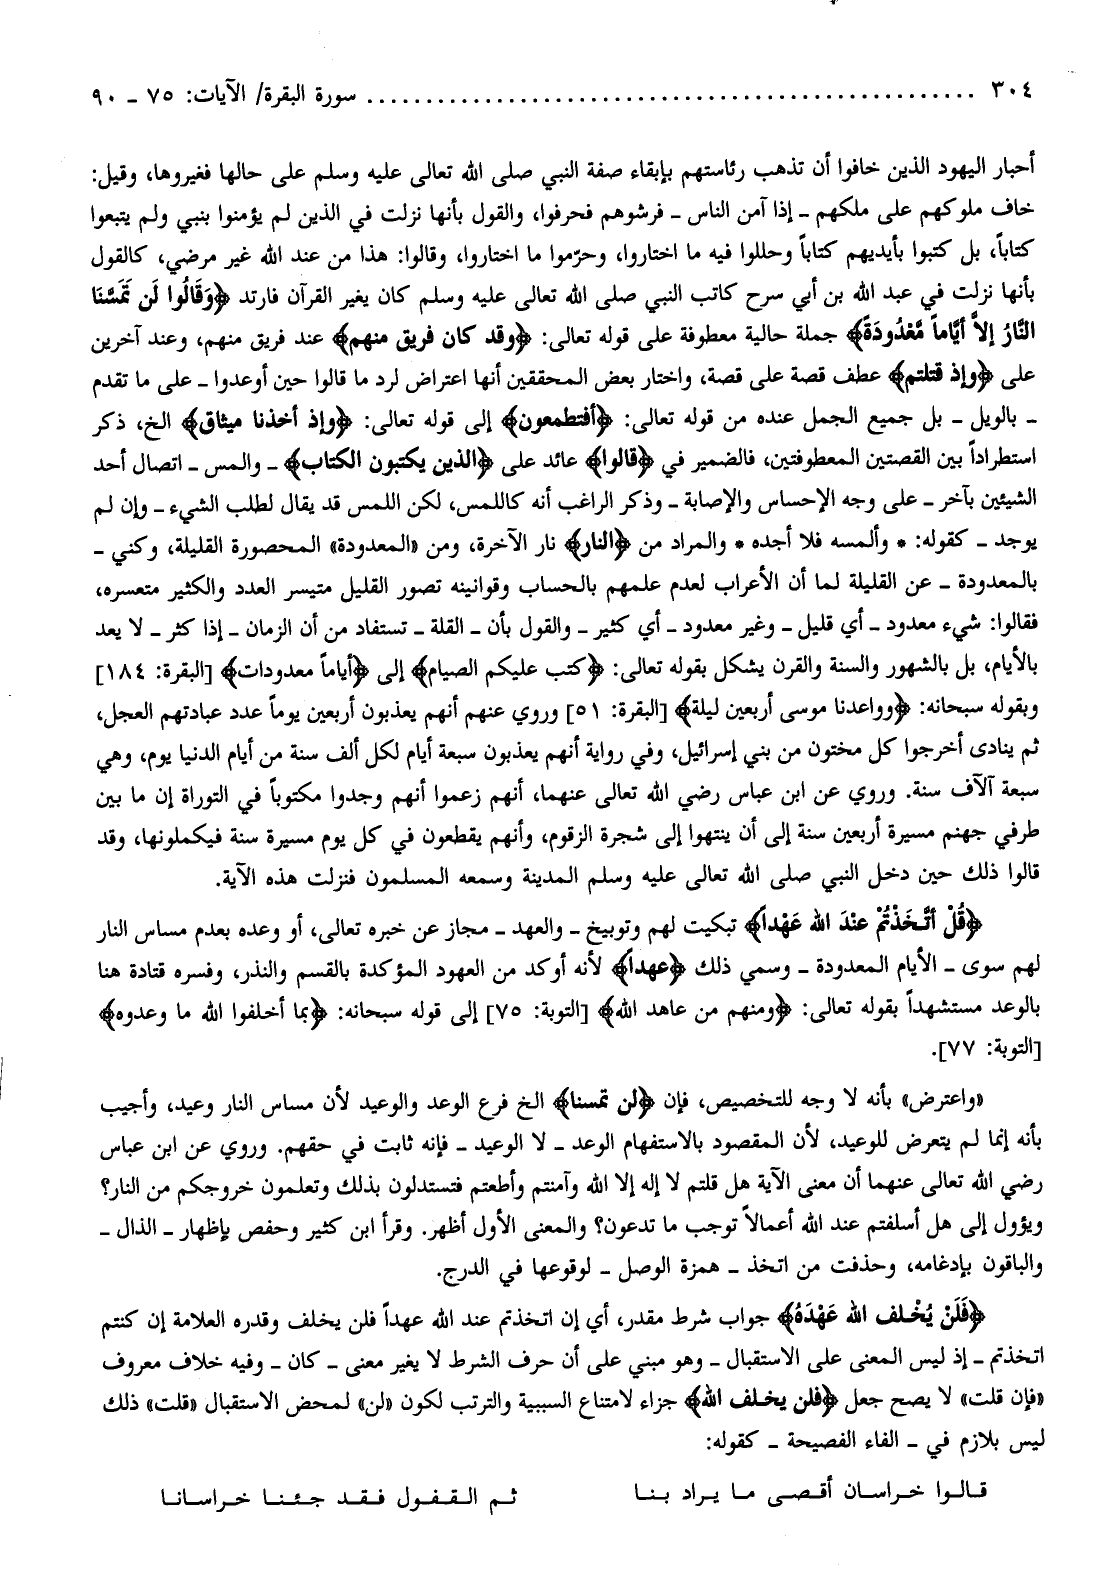 ٣٠٤ ..................................................... سورة البقرة/ الآيات: ٧٥ ـ ٩٠
أحبار اليهود الذين خافوا أن تذهب رئاستهم بإبقاء صفة النبي صلى الله تعالى عليه وسلم على حالها فغيروها، وقيل:
خاف ملوكهم على ملكهم ـ إذا آمن الناس ـ فرشوهم فحرفوا، والقول بأنها نزلت في الذين لم يؤمنوا بنبي ولم يتبعوا
كتاباً، بل كتبوا بأيديهم كتاباً وحللوا فيه ما اختاروا، وحرّموا ما اختاروا، وقالوا: هذا من عند الله غير مرضي، كالقول
بأنها نزلت في عبد الله بن أبي سرح كاتب النبي صلى الله تعالى عليه وسلم كان يغير القرآن فارتد ﴿وَقَالُوا لَن تَمَسَّنَا
النَّارُ إلاَّ أيَّاماً مَّعْدُودَةً﴾ جملة حالية معطوفة على قوله تعالى: ﴿وقد كان فريق منهم﴾ عند فريق منهم، وعند آخرين
على ﴿وإذ قتلتم﴾ عطف قصة على قصة، واختار بعض المحققين أنها اعتراض لرد ما قالوا حين أوعدوا ـ على ما تقدم
ـ بالويل ـ بل جميع الجمل عنده من قوله تعالى: ﴿أفتطمعون﴾ إلى قوله تعالى: ﴿وإذ أخذنا ميثاق﴾ الخ، ذكر
استطراداً بين القصتين المعطوفتين، فالضمير في ﴿قالوا﴾ عائد على ﴿الذين يكتبون الكتاب﴾ ـ والمس ـ اتصال أحد
الشيئين بآخر ـ على وجه الإحساس والإصابة ـ وذكر الراغب أنه كاللمس، لكن اللمس قد يقال لطلب الشيء ـ وإن لم
يوجد ـ كقوله: * وألمسه فلا أجده * والمراد من ﴿النار﴾ نار الآخرة، ومن «المعدودة» المحصورة القليلة، وكني ـ
بالمعدودة ـ عن القليلة لما أن الأعراب لعدم علمهم بالحساب وقوانينه تصور القليل متيسر العدد والكثير متعسره،
فقالوا: شيء معدود ـ أي قليل ـ وغير معدود ـ أي كثير ـ والقول بأن ـ القلة ـ تستفاد من أن الزمان ـ إذا كثر ـ لا يعد
بالأيام، بل بالشهور والسنة والقرن يشكل بقوله تعالى: ﴿كتب عليكم الصيام﴾ إلى ﴿أياماً معدودات﴾ [البقرة: ١٨٤]
وبقوله سبحانه: ﴿وواعدنا موسى أربعين ليلة﴾ [البقرة: ٥١] وروي عنهم أنهم يعذبون أربعين يوماً عدد عبادتهم العجل،
ثم ينادى أخرجوا كل مختون من بني إسرائيل، وفي رواية أنهم يعذبون سبعة أيام لكل ألف سنة من أيام الدنيا يوم، وهي
سبعة آلاف سنة. وروي عن ابن عباس رضي الله تعالى عنهما، أنهم زعموا أنهم وجدوا مكتوباً في التوراة إن ما بين
طرفي جهنم مسيرة أربعين سنة إلى أن ينتهوا إلى شجرة الزقوم، وأنهم يقطعون في كل يوم مسيرة سنة فيكملونها، وقد
قالوا ذلك حين دخل النبي صلى الله تعالى عليه وسلم المدينة وسمعه المسلمون فنزلت هذه الآية.
﴿قُلْ أتَّخَذْتُمْ عنْدَ الله عَهْداً﴾ تبكيت لهم وتوبيخ ـ والعهد ـ مجاز عن خبره تعالى، أو وعده بعدم مساس النار
لهم سوى ـ الأيام المعدودة ـ وسمي ذلك ﴿عهداً﴾ لأنه أوكد من العهود المؤكدة بالقسم والنذر، وفسره قتادة هنا
بالوعد مستشهداً بقوله تعالى: ﴿ومنهم من عاهد الله﴾ [التوبة: ٧٥] إلى قوله سبحانه: ﴿بما أخلفوا الله ما وعدوه﴾
[التوبة: ٧٧].
«واعترض» بأنه لا وجه للتخصيص، فإن ﴿لن تمسنا﴾ الخ فرع الوعد والوعيد لأن مساس النار وعيد، وأجيب
بأنه إنما لم يتعرض للوعيد، لأن المقصود بالاستفهام الوعد ـ لا الوعيد ـ فإنه ثابت في حقهم. وروي عن ابن عباس
رضي الله تعالى عنهما أن معنى الآية هل قلتم لا إله إلا الله وآمنتم وأطعتم فتستدلون بذلك وتعلمون خروجكم من النار؟
ويؤول إلى هل أسلفتم عند الله أعمالاً توجب ما تدعون؟ والمعنى الأول أظهر. وقرأ ابن كثير وحفص بإظهار ـ الذال ـ
والباقون بإدغامه، وحذفت من اتخذ ـ همزة الوصل ـ لوقوعها في الدرج.
﴿فَلَنْ يُخْلف الله عَهْدَهُ﴾ جواب شرط مقدر، أي إن اتخذتم عند الله عهداً فلن يخلف وقدره العلامة إن كنتم
اتخذتم ـ إذ ليس المعنى على الاستقبال ـ وهو مبني على أن حرف الشرط لا يغير معنى ـ كان ـ وفيه خلاف معروف
«فإن قلت» لا يصح جعل ﴿فلن يخلف الله﴾ جزاء لامتناع السببية والترتب لكون «لن» لمحض الاستقبال «قلت» ذلك
ليس بلازم في ـ الفاء الفصيحة ـ كقوله:
قالوا خراسان أقصى ما يراد بنا ثم القفول فقد جئنا خراسانا